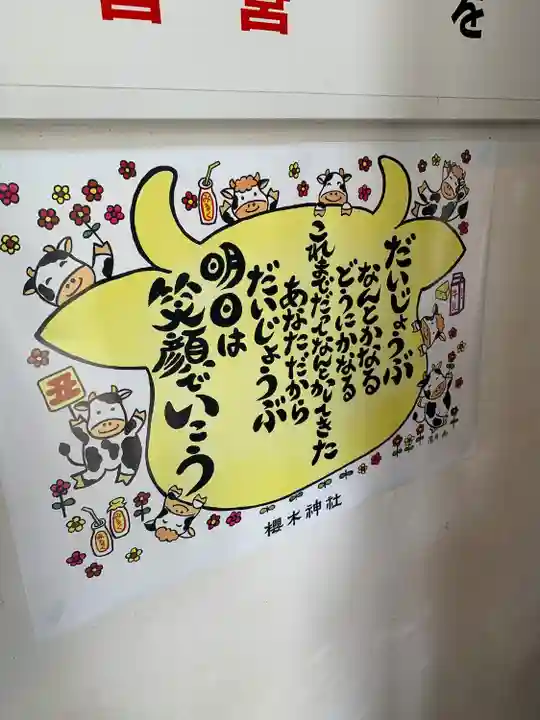 宮
を
だいじょうぶ
なんとかなる
どうにかなる
これまでだってなんとかしてきた
あなただから
だいじょうぶ
明日は
笑顔でいこう
丑
櫻木神社